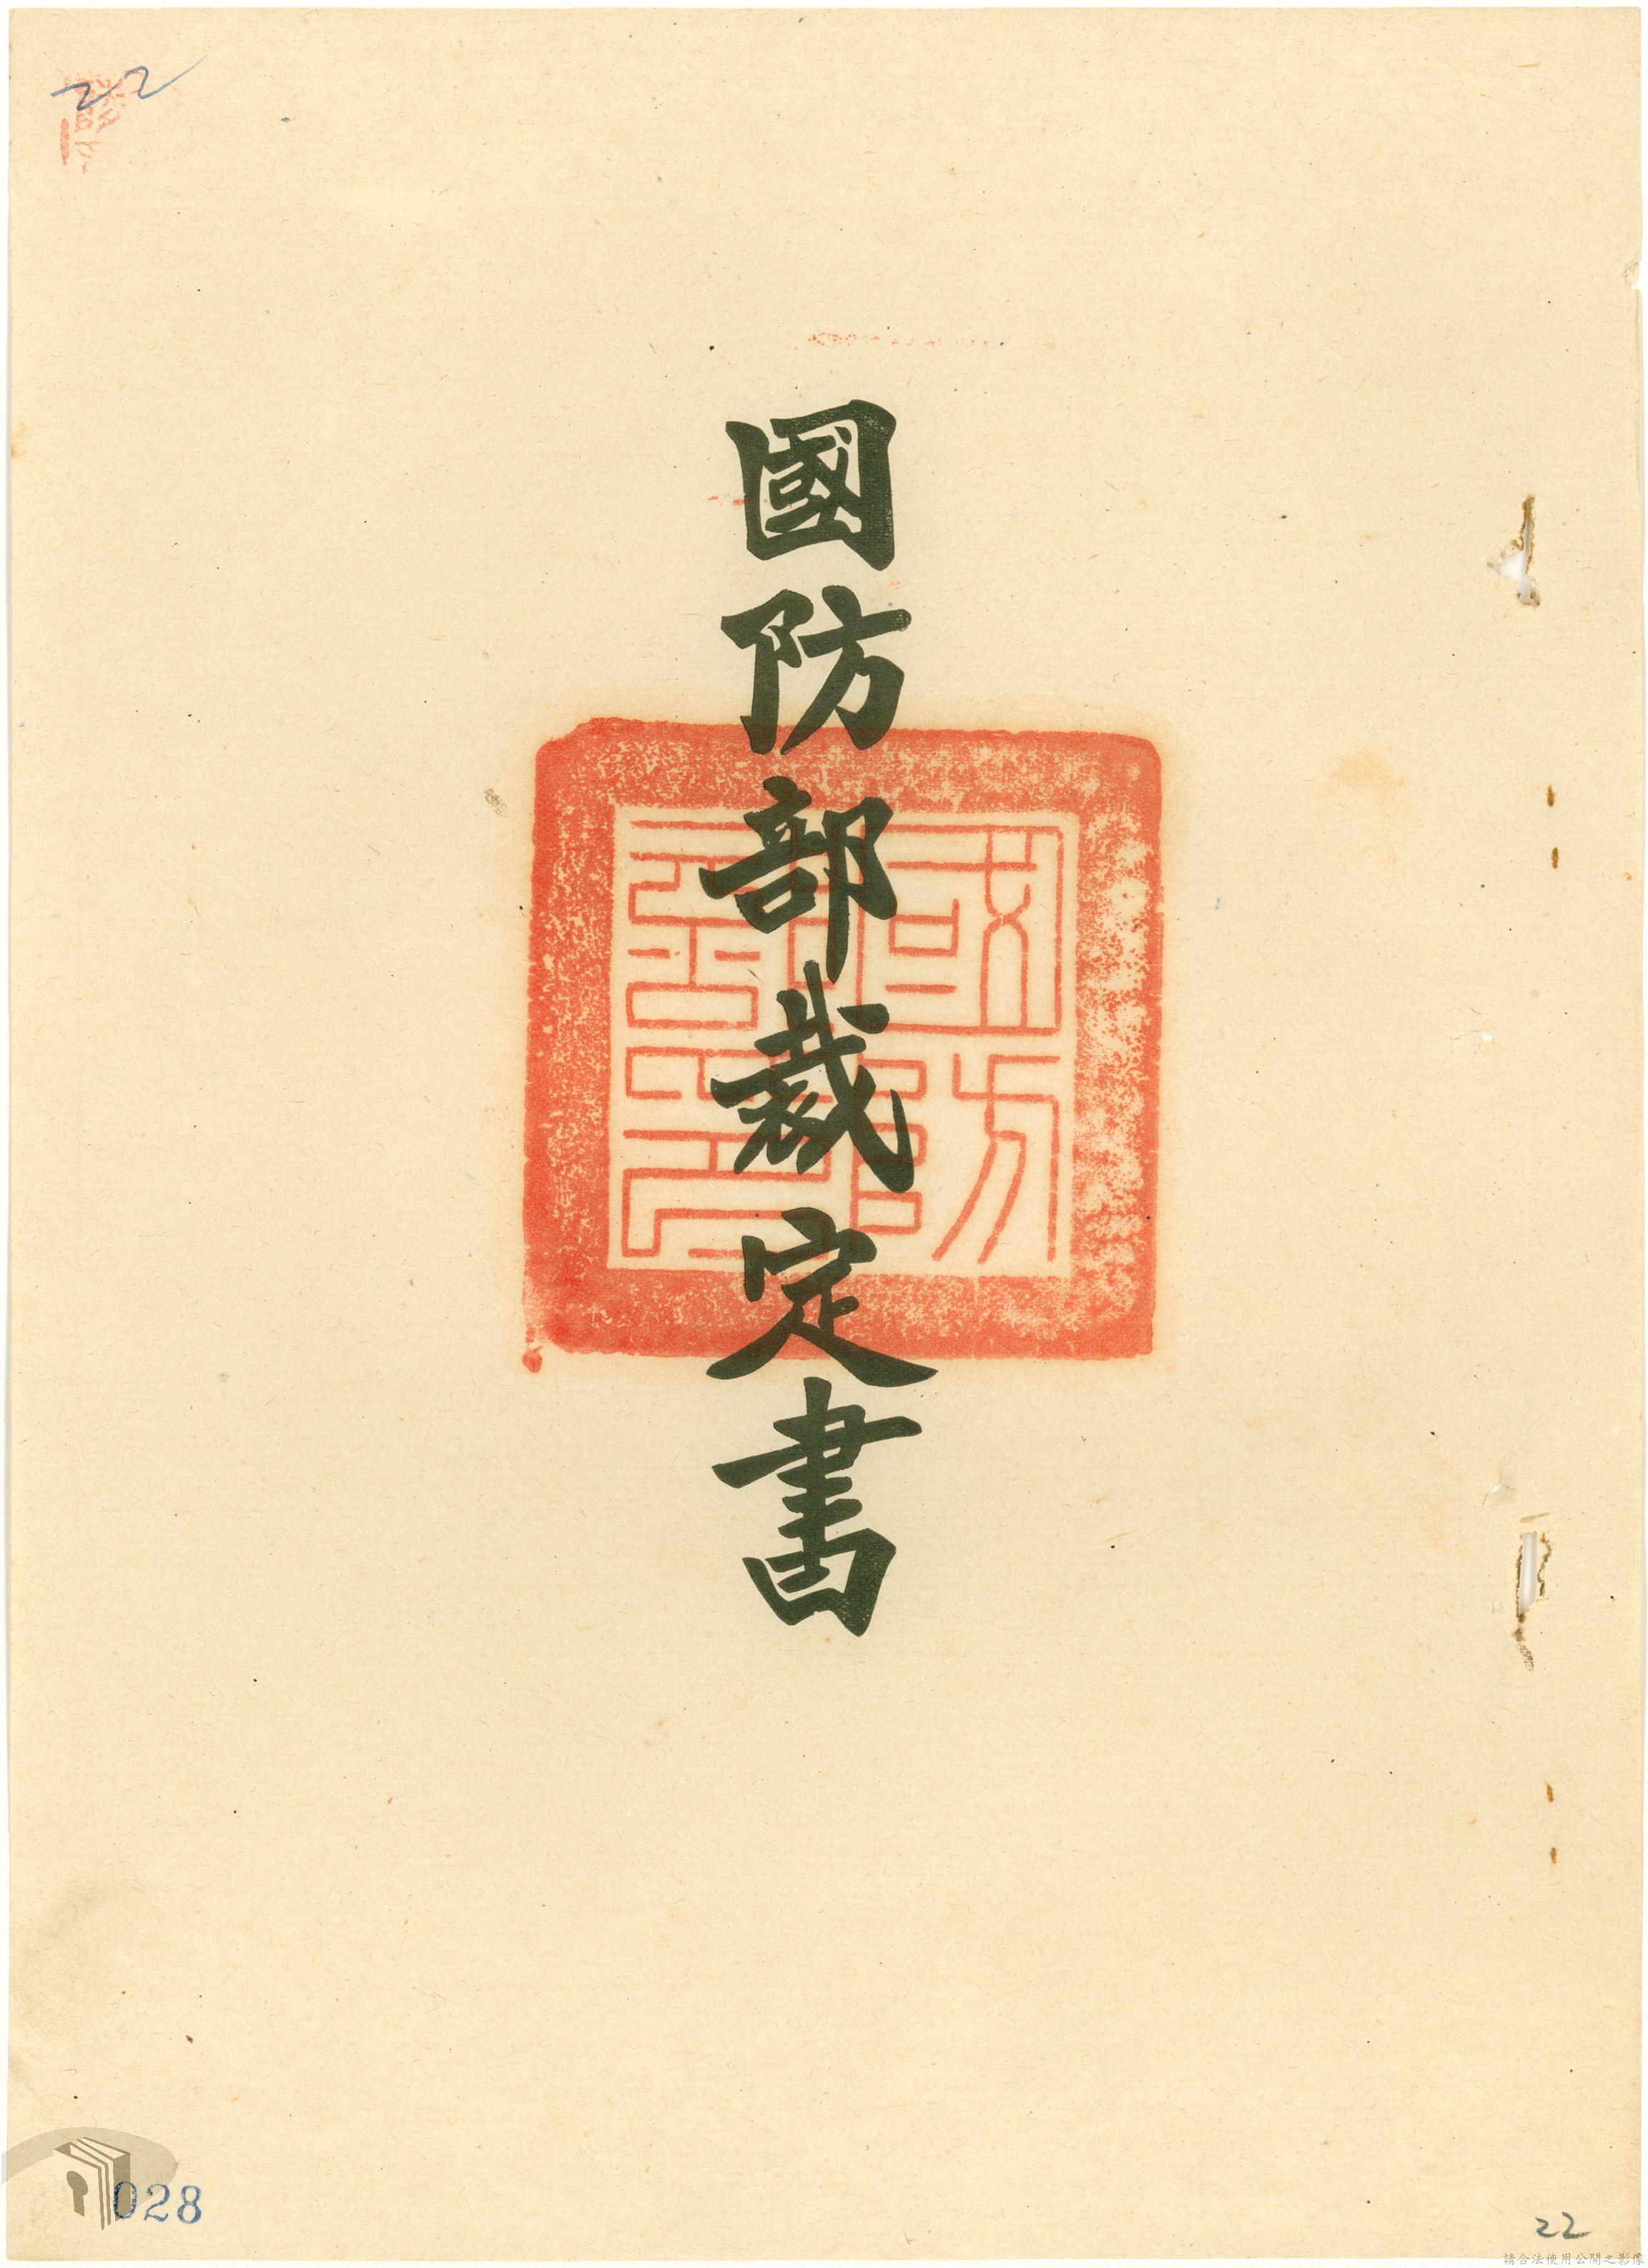 22
國防部裁定書
國防
部
印
028
22
請合法使用公開之影像